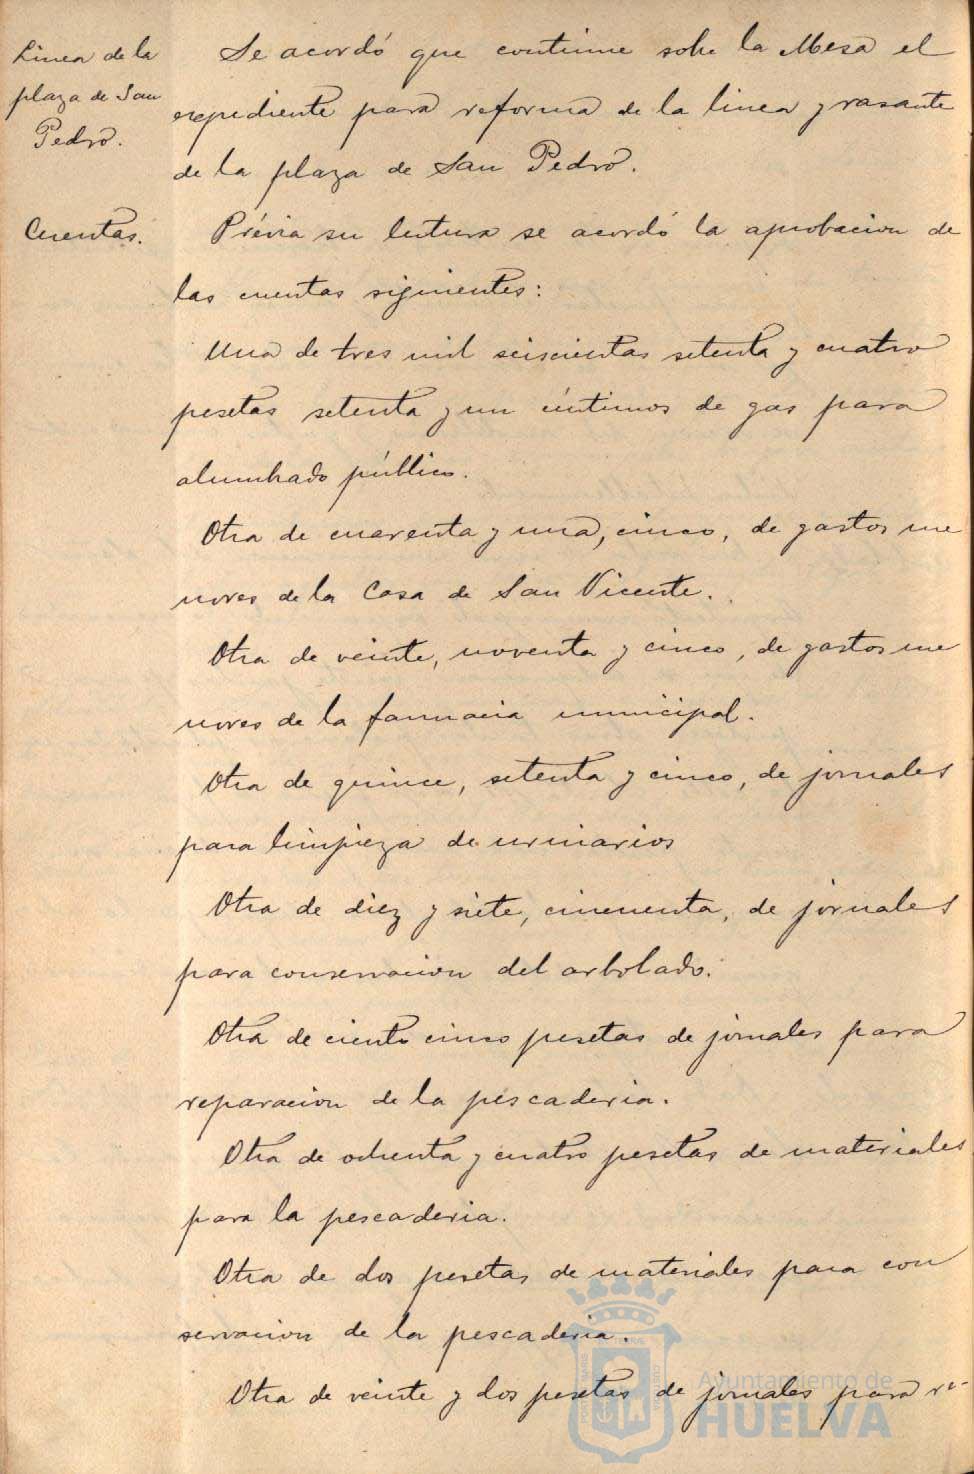 Linea de la
plaza de San
Pedro.
Se acordó que continue sobre la Mesa el
expediente para reforma de la linea y rasante
de la plaza de San Pedro.
Cuentas.
Prévia su lectura se acordó la aprobacion de
las cuentas siguientes:
Una de tres mil seiscientas setenta y cuatro
pesetas setenta y un céntimos de gas para
alumbrado público.
Otra de cuarenta y una, cinco, de gastos me
nores de la Casa de San Vicente.
Otra de veinte, noventa y cinco, de gastos me
nores de la farmacia municipal.
Otra de quince, setenta y cinco, de jornales
para limpieza de urinarios
Otra de diez y siete, cincuenta, de jornales
para conservacion del arbolado.
Otra de ciento cinco pesetas de jornales para
reparacion de la pescaderia.
Otra de ochenta y cuatro pesetas de materiales
para la pescaderia.
Otra de dos pesetas de materiales para con
servacion de la pescaderia.
Otra de veinte y dos pesetas de jornales para re-
Ayuntamiento de
HUELVA